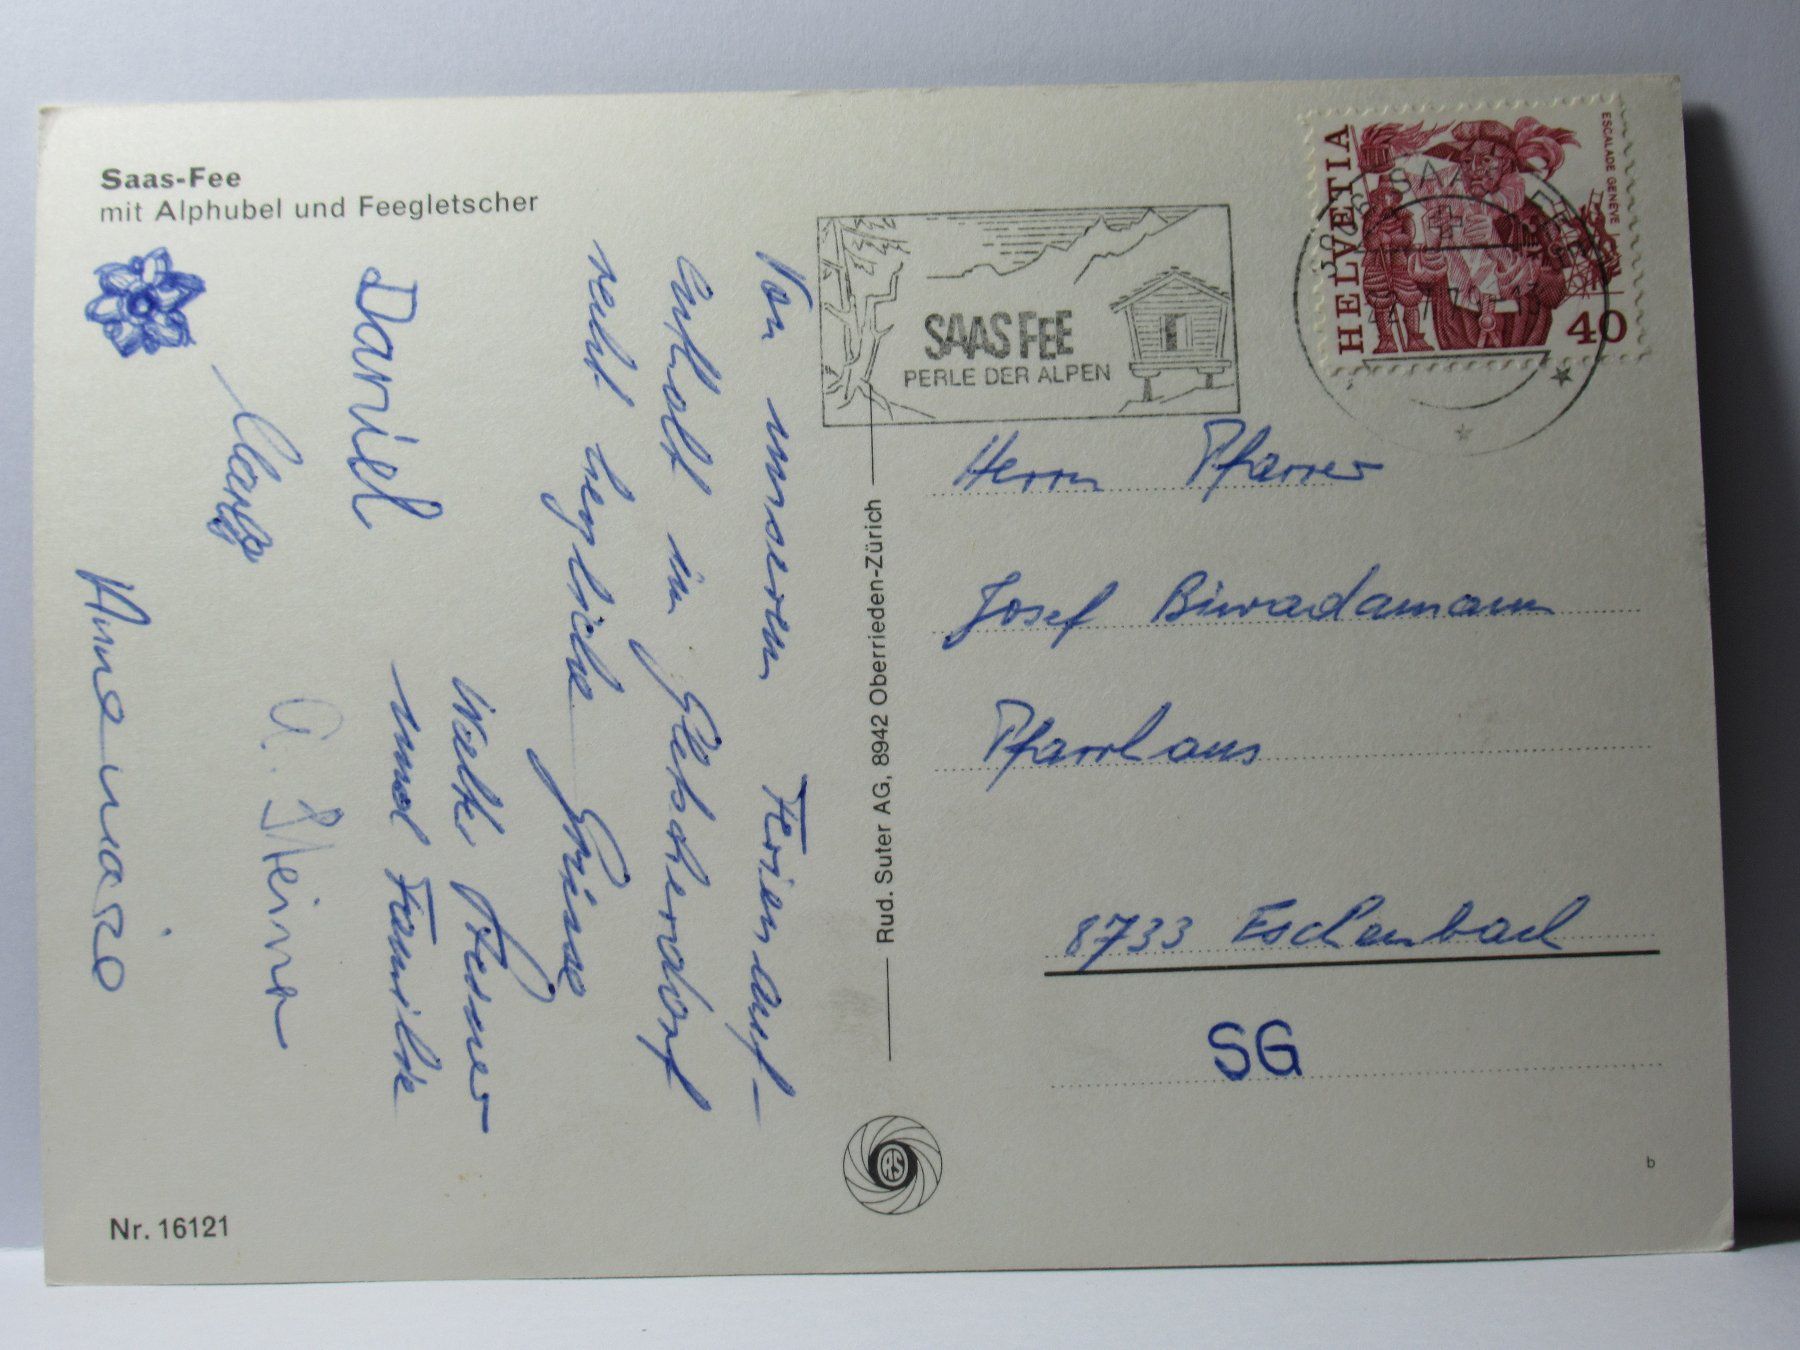 Saas-Fee
mit Alphubel und Feegletscher
Von unserem Ferienauf-
enthalt im Gletscherdorf
recht herzliche Grüsse
Walter
und Familie
Daniel
Annemarie
Nr. 16121
Rud. Suter AG, 8942 Oberrieden-Zürich
SAAS FEE
PERLE DER ALPEN
HELVETIA
ESCALADE GENÈVE
40
Herrn Pfarrer
Josef
Pfarrhaus
8733 Eschenbach
SG
b